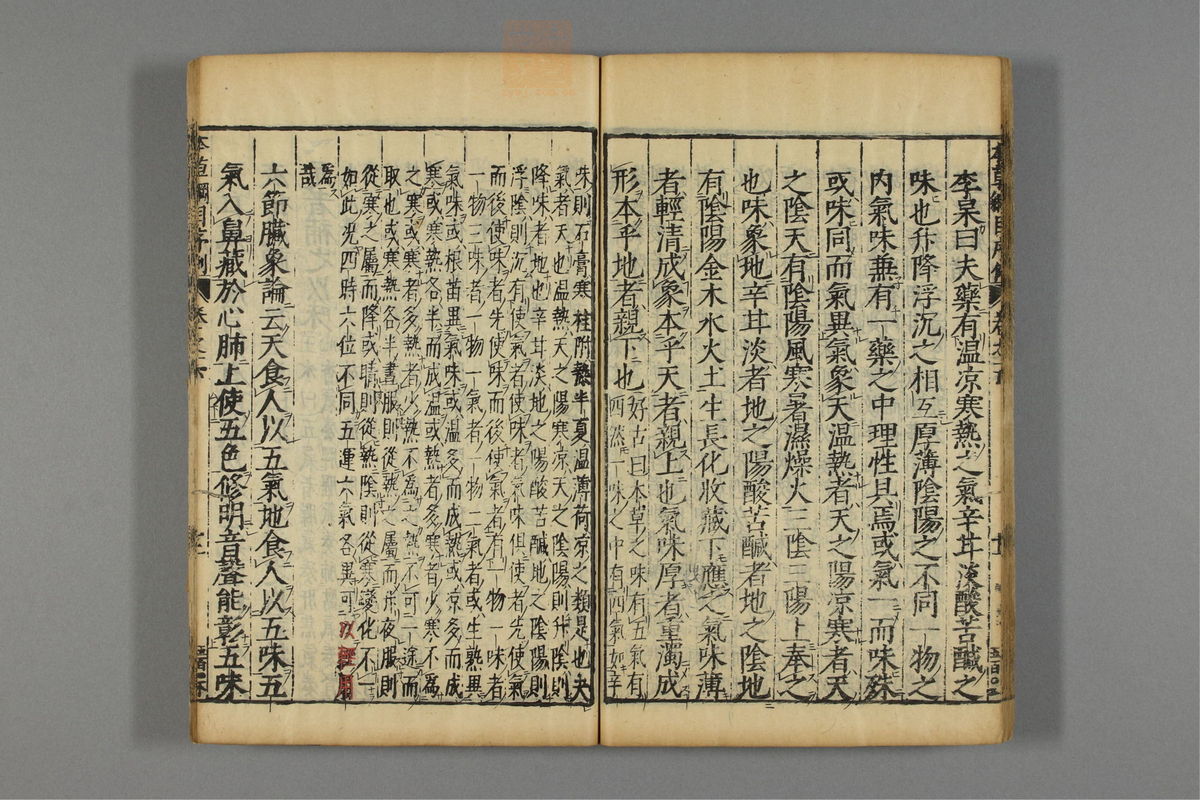 李杲曰夫藥有溫凉寒熱之氣辛甘淡酸苦鹹之
味也升降浮沉之相互厚薄陰陽之不同一物之
内氣味兼有一藥之中理性具焉或氣一而味殊
或味同而氣異氣象天溫熱者天之陽凉寒者天
之陰天有陰陽風寒暑濕燥火三陰三陽上奉之
也味象地辛甘淡者地之陽酸苦鹹者地之陰地
有陰陽金木水火土生長化收藏下應之氣味薄
者輕清成象本乎天者親上也氣味厚者重濁成
形本乎地者親下也好古曰本草之味有五氣有
四然一味之中有四氣如辛
味則石膏寒桂附熱半夏溫薄荷凉之類是也夫
氣者天也溫熱天之陽寒凉天之陰陽則升陰則
降味者地也辛甘淡地之陽酸苦鹹地之陰陽則
浮陰則沉有使氣者使味者氣味俱使者先使氣
而後使味者先使味而後使氣者有一物一味者
一物三味者一物一氣者一物二氣者或生熟異
氣味或根苗異氣味或溫多而成熱或凉多而成
寒或寒熱各半而成溫或熱者多寒者少寒不為
之寒或寒者多熱者少熱不為之熱不可一途而
取也或寒熱各半晝服則從熱之屬而升夜服則
從寒之屬而降或晴則從熱陰則從寒變化不一
如此况四時六位不同五運六氣各異可以輕用
為哉
六節臟象論云天食人以五氣地食人以五味五
氣入鼻藏於心肺上使五色修明音聲能彰五味
本草綱目序例 卷之六